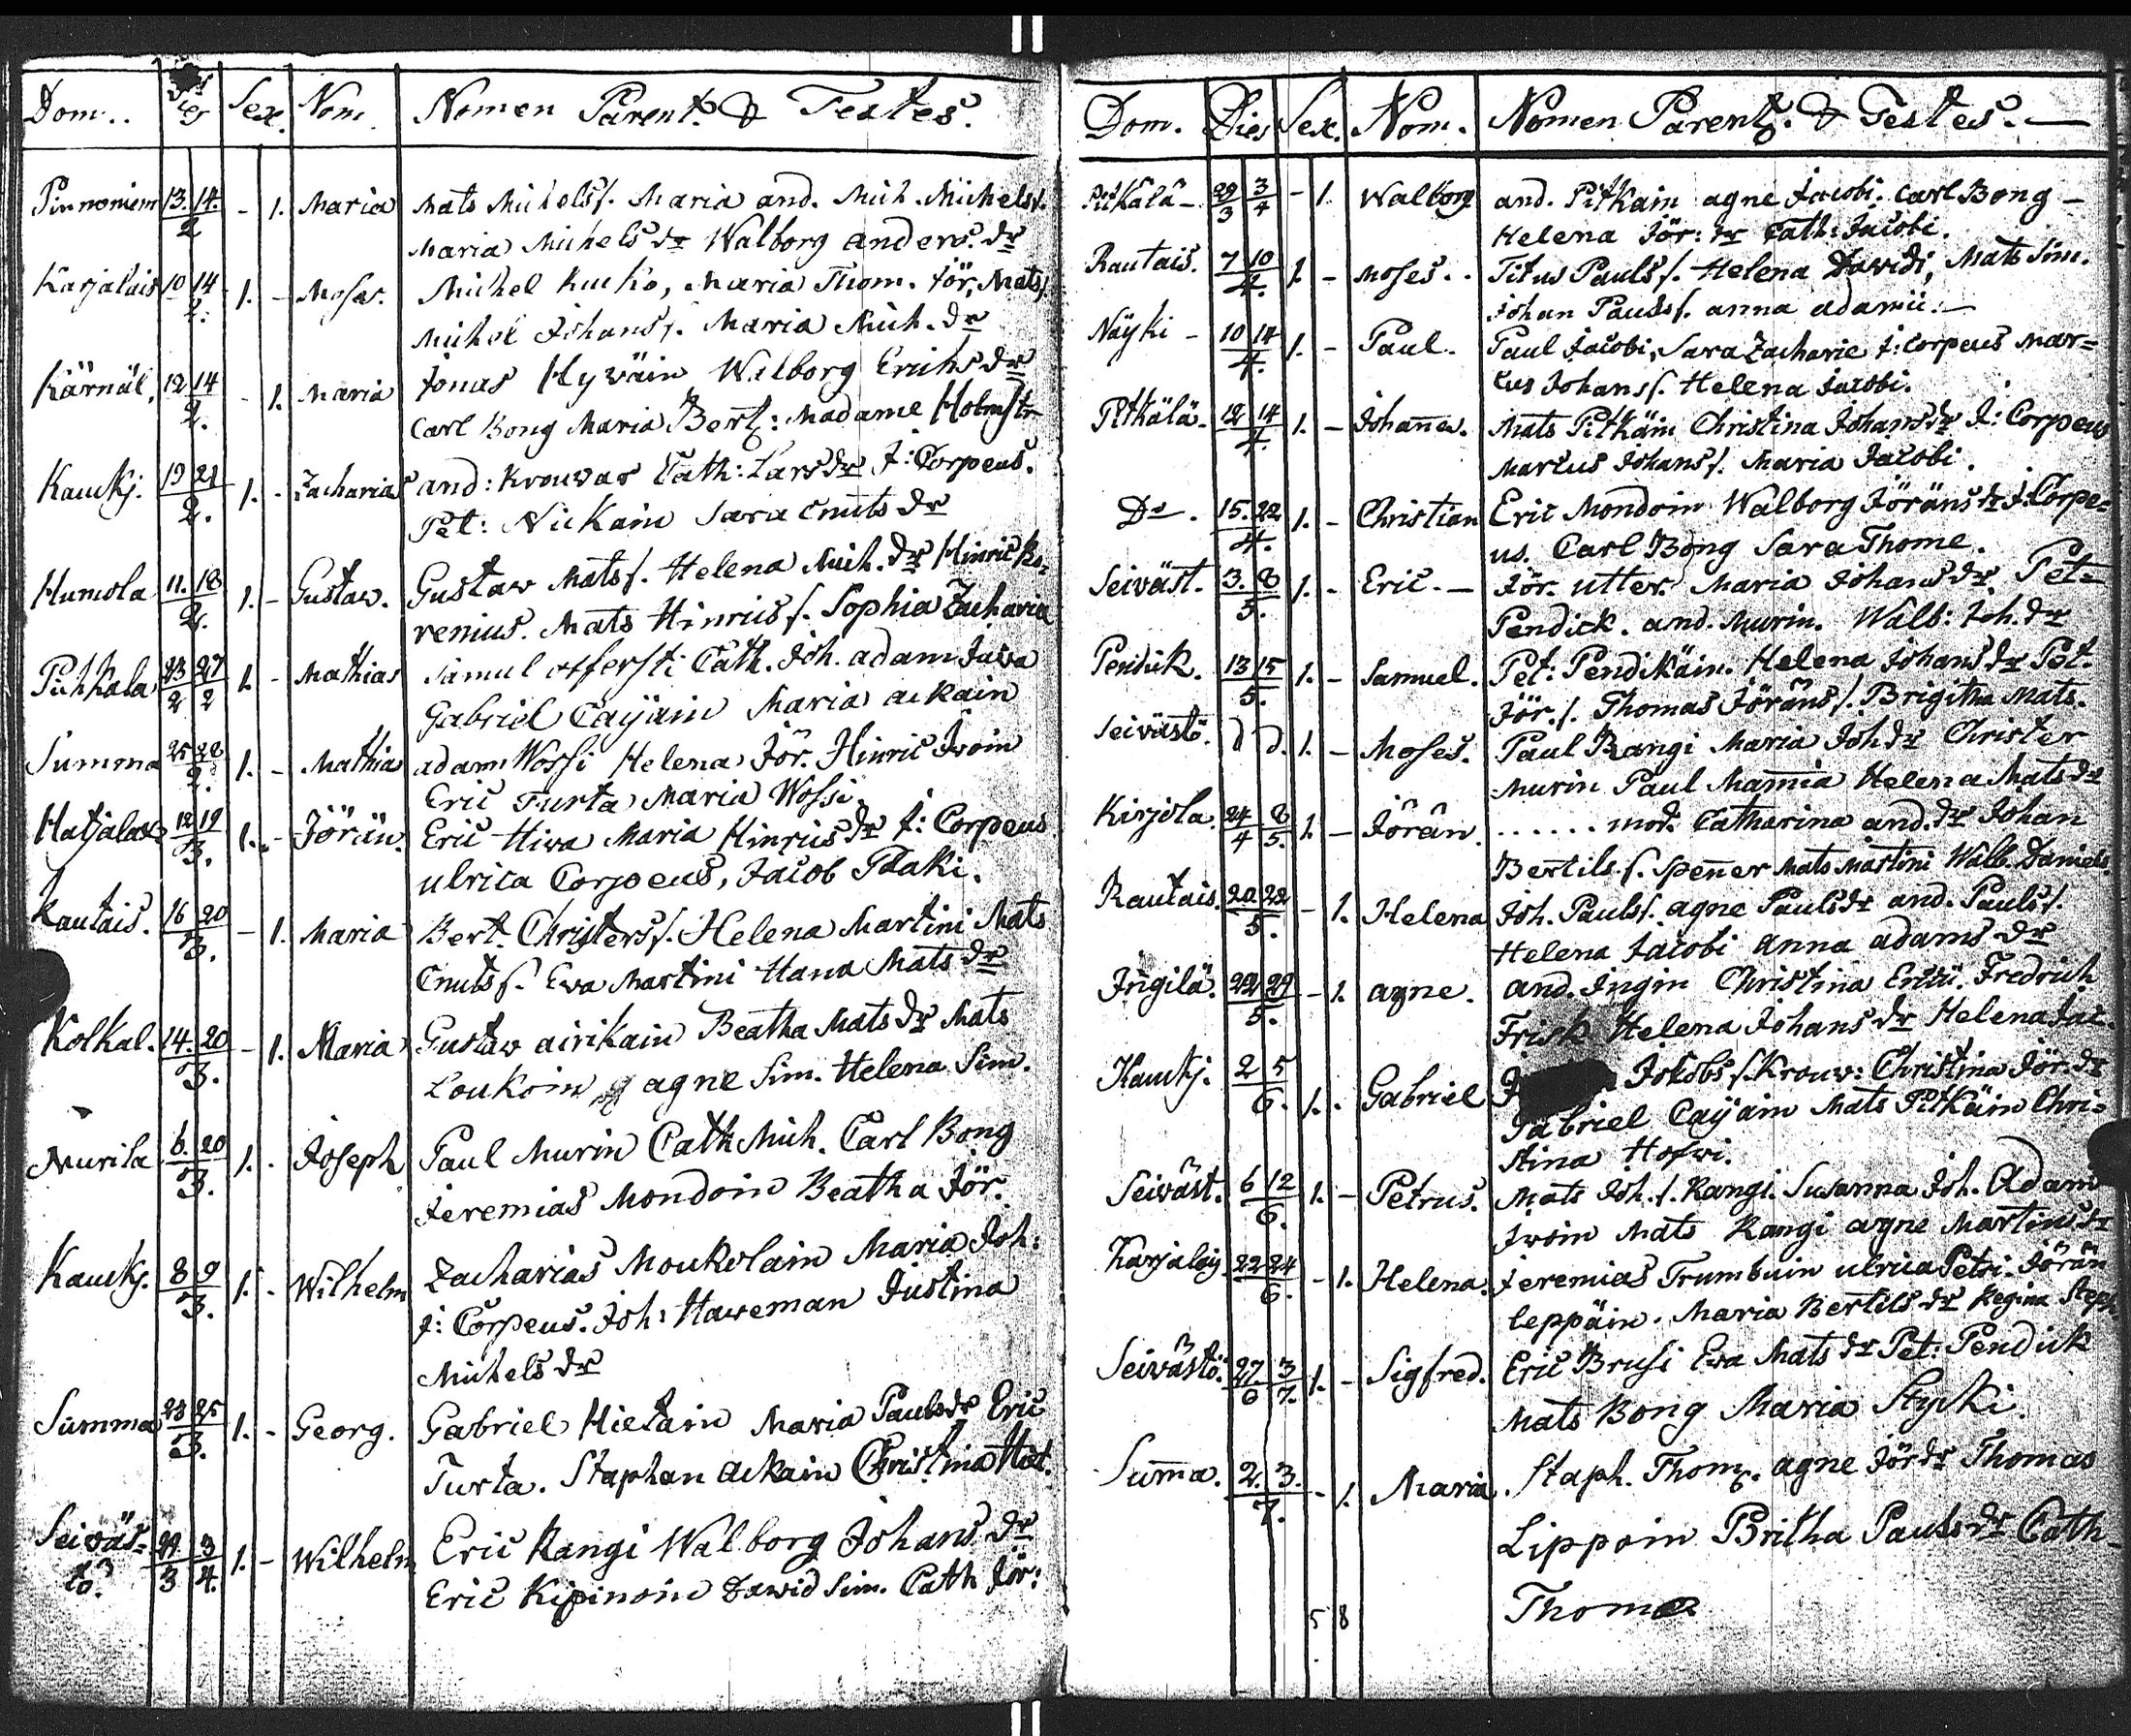 Dom.. Dies Sex. Nom. Nomen Parent. & Testes.
Pinnoniem 13. 14. - 1. Maria Mats Michelsf. Maria and. Mich. Michelsf.
2 Maria Michels dr Walborg anders. dr
Karjalais 10 14 1. - Moses. Michel Kucko, Maria Thom. Jör. Matsf.
2. Michel Johansf. Maria Mich. dr
Kärnäl, 12 14 - 1. Maria Jonas Hyväin Walborg Erichs dr
2. Carl Bong Maria Bert: Madame Holmstr
Kauckj. 19 21 1. - Zacharias and: Krouwar Cath: Lars dr J: Corpeus.
2. Pet: Nickain Sara Cnuts dr
Humola 11. 18 1. - Gustav. Gustaw Matsf. Helena Mich. dr Hinric Ko=
2. renius. Mats Hinricsf. Sophia Zacharia
Pihkala 23 27 1. - Mathias Samul Cath. Joh. adam
2 2 Gabriel Cayain Maria ackain
Summa 25 28 1. - Mathia adam Wossi Helena Jör. Hinric Iwoin
2. Eric Turta Maria Wossi.
Hatjalax 12 19 1. - Jörän. Eric Hiwa Maria Hinrics dr J: Corpeus
3. ulrica Corpeus, Jacob Plaki.
Rautais. 16 20 - 1. Maria Bert. Christersf. Helena Martini Mats
3. Cnutsf. Eva Martini Hana Mats dr
Kolkal. 14. 20 - 1. Maria Gustav airikain Beatha Mats dr Mats
3. Loukoin agne Sim. Helena Sim.
Murila 6. 20 1. - Joseph Paul Murin Cath Mich. Carl Bong
3. Jeremias Mondoin Beatha Jör.
Kauckj. 8 9 1. - Wilhelm Zacharias Moukolain Maria Joh:
3. J: Corpeus. Joh: Haweman Justina
Michels dr
Summa 23 25 1. - Georg. Gabriel Hietain Maria Pauls dr Eric
3. Turta. Staphan ackain Christina Mat.
Seiväs= 29 3 1. - Wilhelm Eric Rangi Walborg Johans dr
tö. 3 4. Eric Kipinoin Dawid Sim. Cath Jör:
Dom. Dies Sex. Nom. Nomen Parent. & Testes. —
Pitkälä - 29 3 - 1. Walborg and. Pitkain agne Jacobi. Carl Bong -
3 4 Helena Jör: dr Cath: Jacobi.
Rautais. 7 10 1. - Moses. . Titus Paulsf. Helena Dawidi, Mats Sim.
4. Johan Paulsf. anna adamii. —
Näyki - 10 14 1. - Paul. Paul Jacobi, Sara Zacharie J: Corpeus Mar=
4. cus Johansf. Helena Jacobi.
Pitkälä. 12 14 1. - Johannes. Mats Pitkäin Christina Johans dr J: Corpeus
4. Marcus Johansf. Maria Jacobi.
Do. 15. 22 1. - Christian Eric Mondoin Walborg Jöräns dr J: Corpe=
4. us. Carl Bong Sara Thome.
Seiväst. 3. 8 1. - Eric. — Jör. utter. Maria Johans dr Pet=
5. Pendick. and. Murin. Walb: Joh. dr
Pendick. 13 15 1. - Samuel. Pet: Pendikäin. Helena Johans dr Pet.
5. Jör. f. Thomas Jöränsf. Brigitha Mats.
Seivästö. d d. 1. - Moses. Paul Rangi Maria Joh dr Christer
Murin Paul Mamia Helena Mats dr
Kirjola. 24 8 1. - Jörän. ...... mod. Catharina and. dr Johan
4 5. Bertils f. Spenner Mats Martini Walb. Daniels.
Rautais. 20. 22 - 1. Helena Joh. Paulsf. agne Pauls dr and. Paulsf.
5. Helena Jacobi anna adams dr
Ingilä. 22 29 - 1. agne. and. Ingin Christina Erici. Fredrich
5. Frisk Helena Johans dr Helena Jac.
Kauckj. 2 5 1. - Gabriel Jakobsf. Krouw: Christina Jör. dr
6. Gabriel Cayain Mats Pitkäin Chri=
stina Hofwi.
Seiväst. 6 12 1. - Petrus. Mats Joh. f. Rangi. Susanna Joh. Adam
6. Iwoin Mats Rangi agne Martins dr
Karjalais 22 24 - 1. Helena. Jeremias Trumbuin ulrica Petri. Jörän
6. Leppäin. Maria Bertils dr Regina Steph.
Seivästö. 27 3 1. - Sigfred. Eric Brusi Eva Mats dr Pet: Pendick
6 7. Mats Bong Maria Stycki.
Summa. 2. 3. - 1. Maria. Staph. Thom. agne Jör dr Thomas
7. Lippoin Britha Pauls dr Cath-
5 8 Thomæ